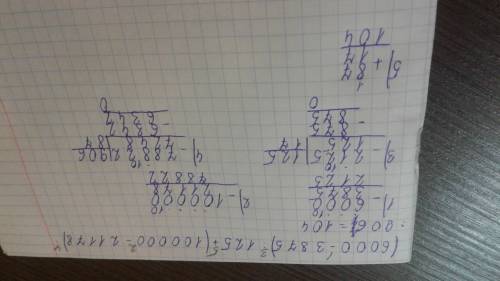 (6000 - 3875) : 125 + (100000 - 21178) :
: 906 = 104
1) - 6000
3875
2125
2) - 100000
21178
78822
3) - 2125 | 125
125 | 17
- 875
875
0
4) - 78822 | 906
7248 | 87
- 6342
6342
0
5) + 87
17
104